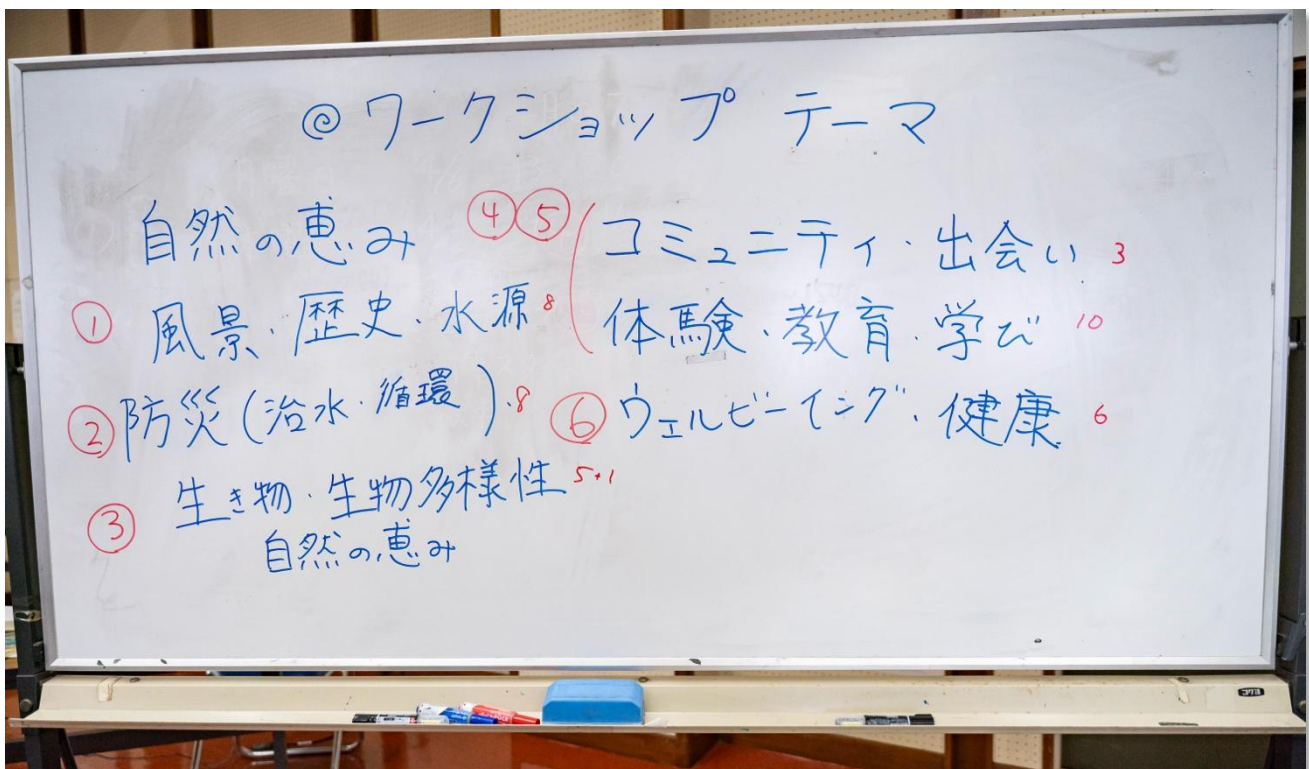 ◎ワークショップ テーマ
自然の恵み
① 風景・歴史・水源 8
② 防災(治水・循環)・8
③ 生き物・生物多様性 5+1
自然の恵み
④⑤ コミュニティ・出会い 3
体験・教育・学び 10
⑥ ウェルビーイング・健康 6
コクヨ